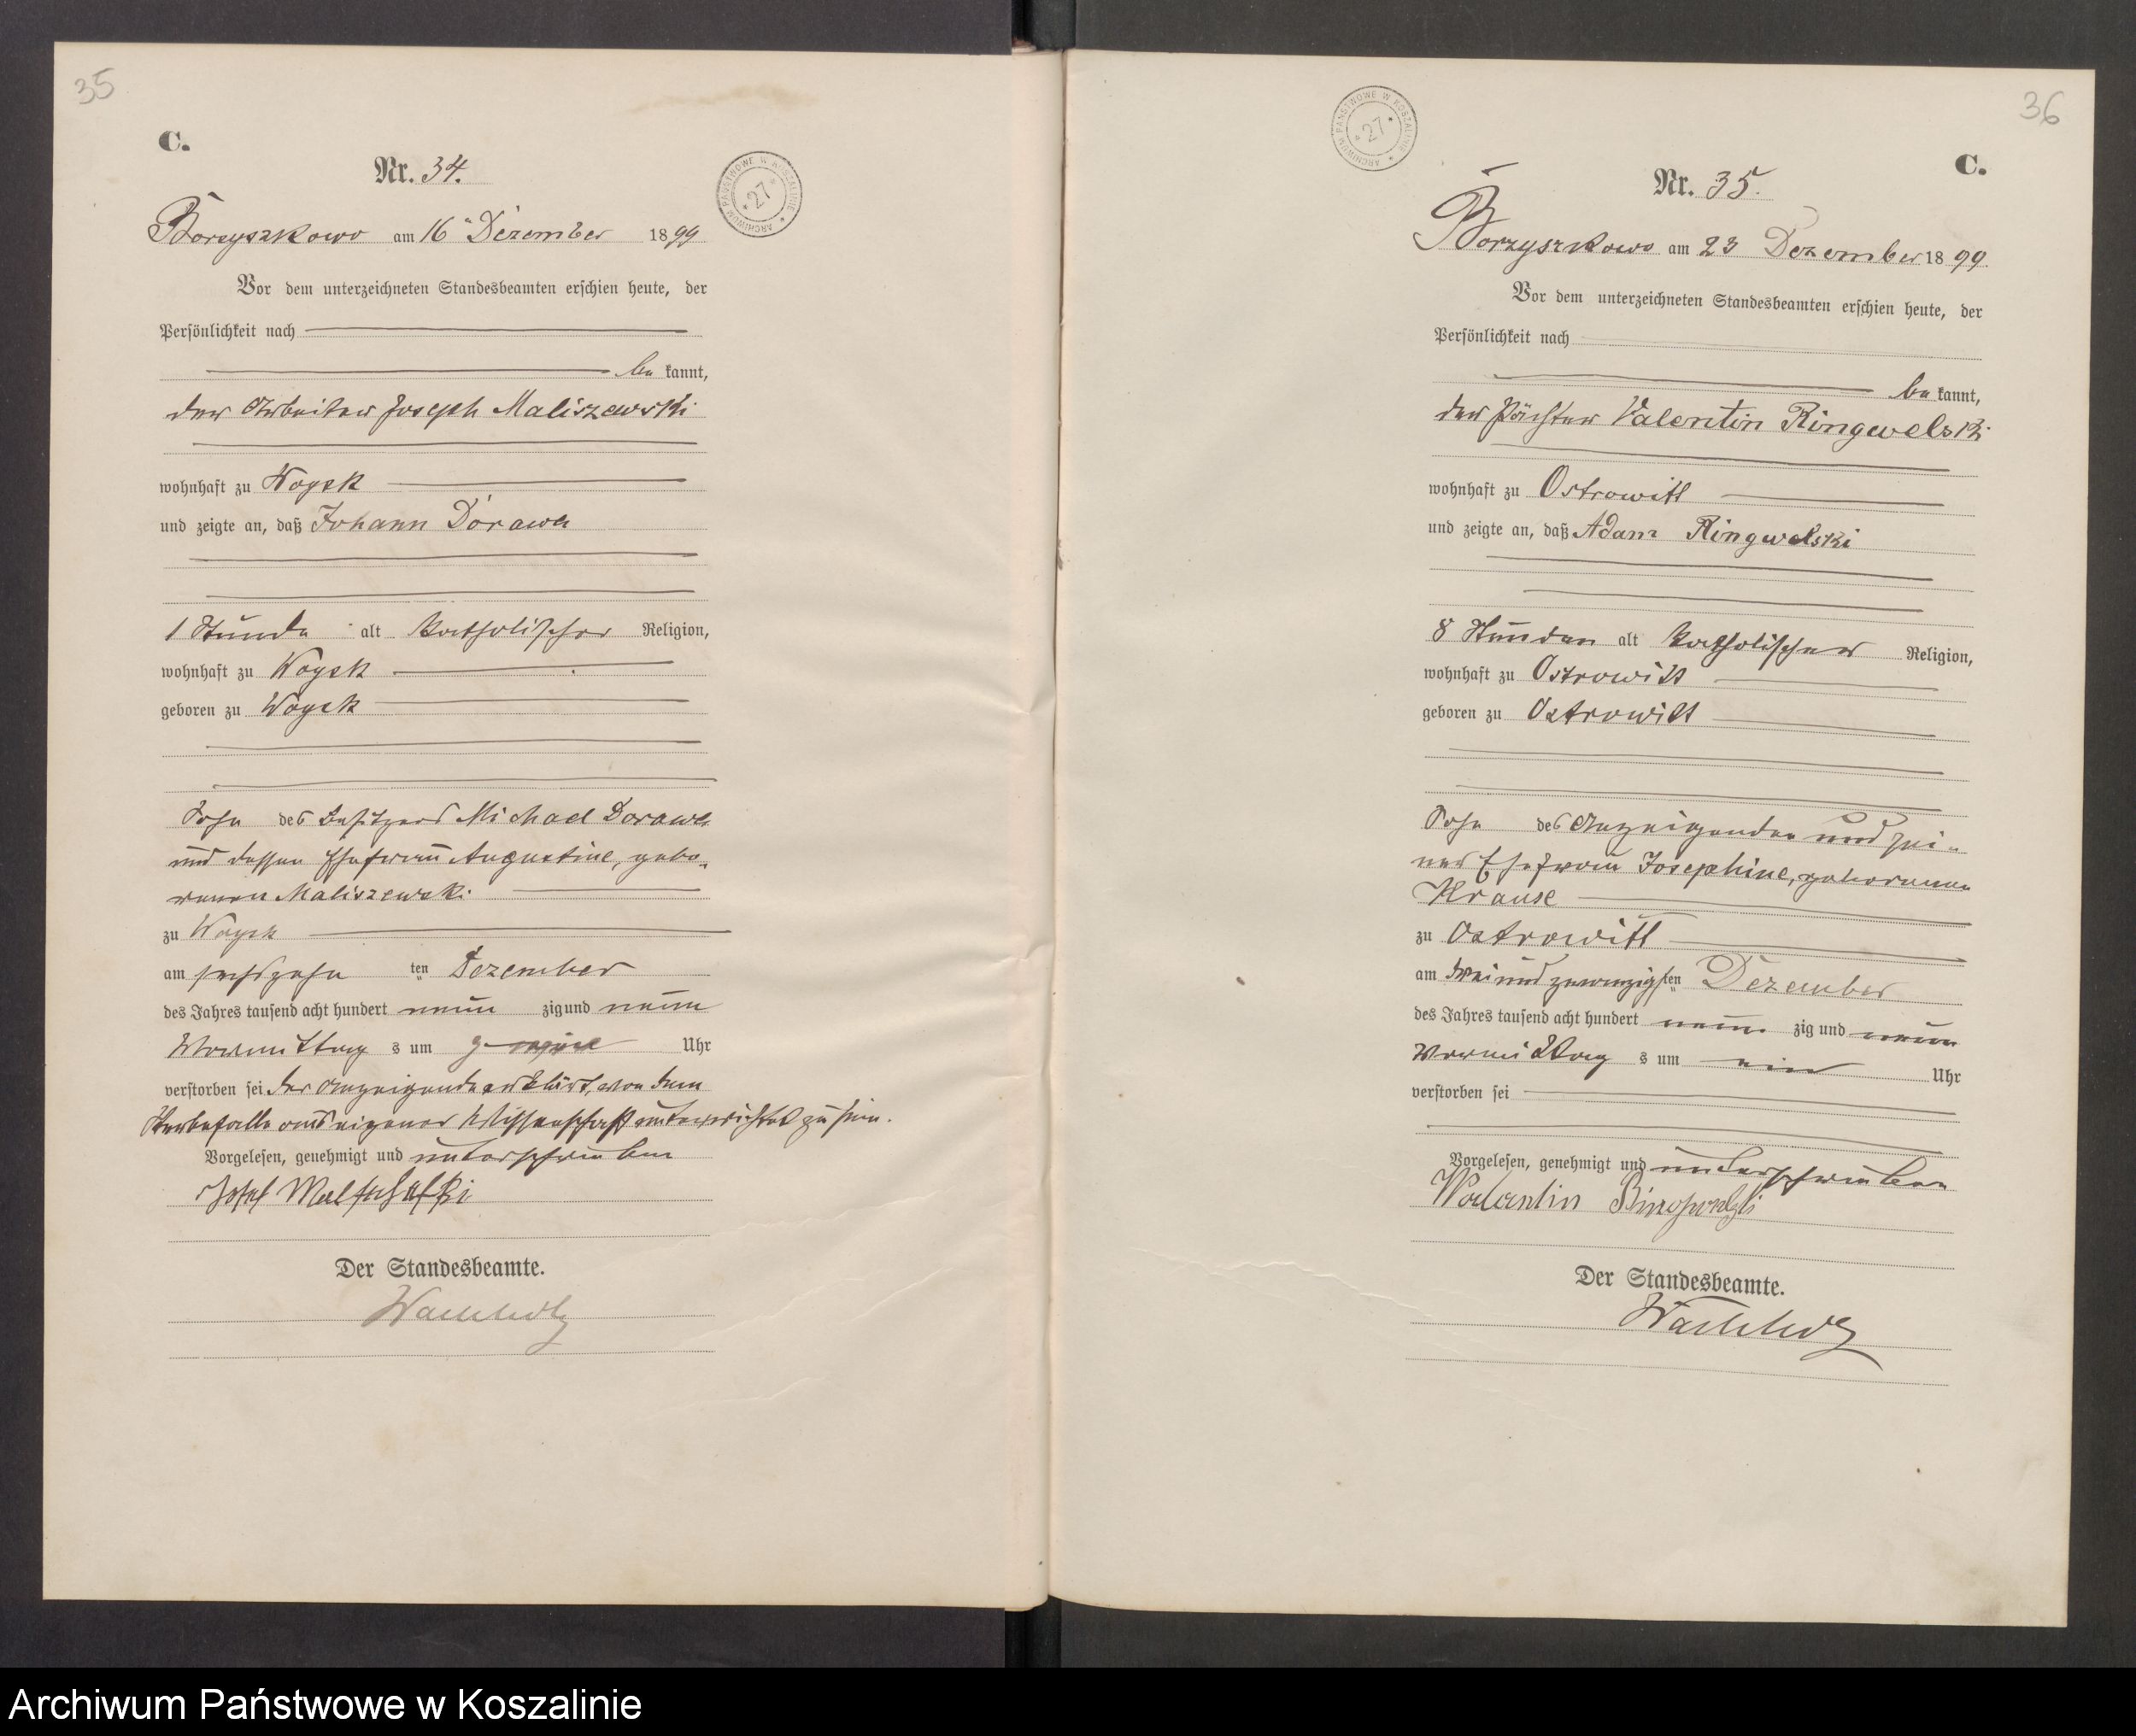 35
C.
Nr. 34.
ARCHIWUM PAŃSTWOWE W KOSZALINIE * 27 *
Borzyszkowo am 16 Dezember 1899
Vor dem unterzeichneten Standesbeamten erschien heute, der
Persönlichkeit nach
be kannt,
der Arbeiter Joseph Maliszewski
wohnhaft zu Woysk
und zeigte an, daß Johann Dorawa
1 Stunde alt katholischer Religion,
wohnhaft zu Woysk
geboren zu Woysk
Sohn des Besitzers Michael Dorawa
und dessen Ehefrau Augustine, gebo-
renen Maliszewski
zu Woysk
am sechszehn ten Dezember
des Jahres tausend acht hundert neun zig und neun
Vormittag s um Uhr
verstorben sei der Anzeigende erklärt, von dem
Sterbefalle aus eigener Wissenschaft unterrichtet zu sein.
Vorgelesen, genehmigt und unterschrieben
Josef
Der Standesbeamte.
36
ARCHIWUM PAŃSTWOWE W KOSZALINIE * 27 *
C.
Nr. 35.
Borzyszkowo am 23 Dezember 1899.
Vor dem unterzeichneten Standesbeamten erschien heute, der
Persönlichkeit nach
be kannt,
der Pächter Valentin Ringwelski
wohnhaft zu Ostrowitt
und zeigte an, daß Adam Ringwelski
8 Stunden alt katholischer Religion,
wohnhaft zu Ostrowitt
geboren zu Ostrowitt
Sohn des Anzeigenden und sei-
ner Ehefrau Josephine, geborenen
Krause
zu Ostrowitt
am dreiundzwanzigsten Dezember
des Jahres tausend acht hundert neun zig und neun
Vormittag s um ein Uhr
verstorben sei
Vorgelesen, genehmigt und unterschrieben
Walentin
Der Standesbeamte.
Archiwum Państwowe w Koszalinie